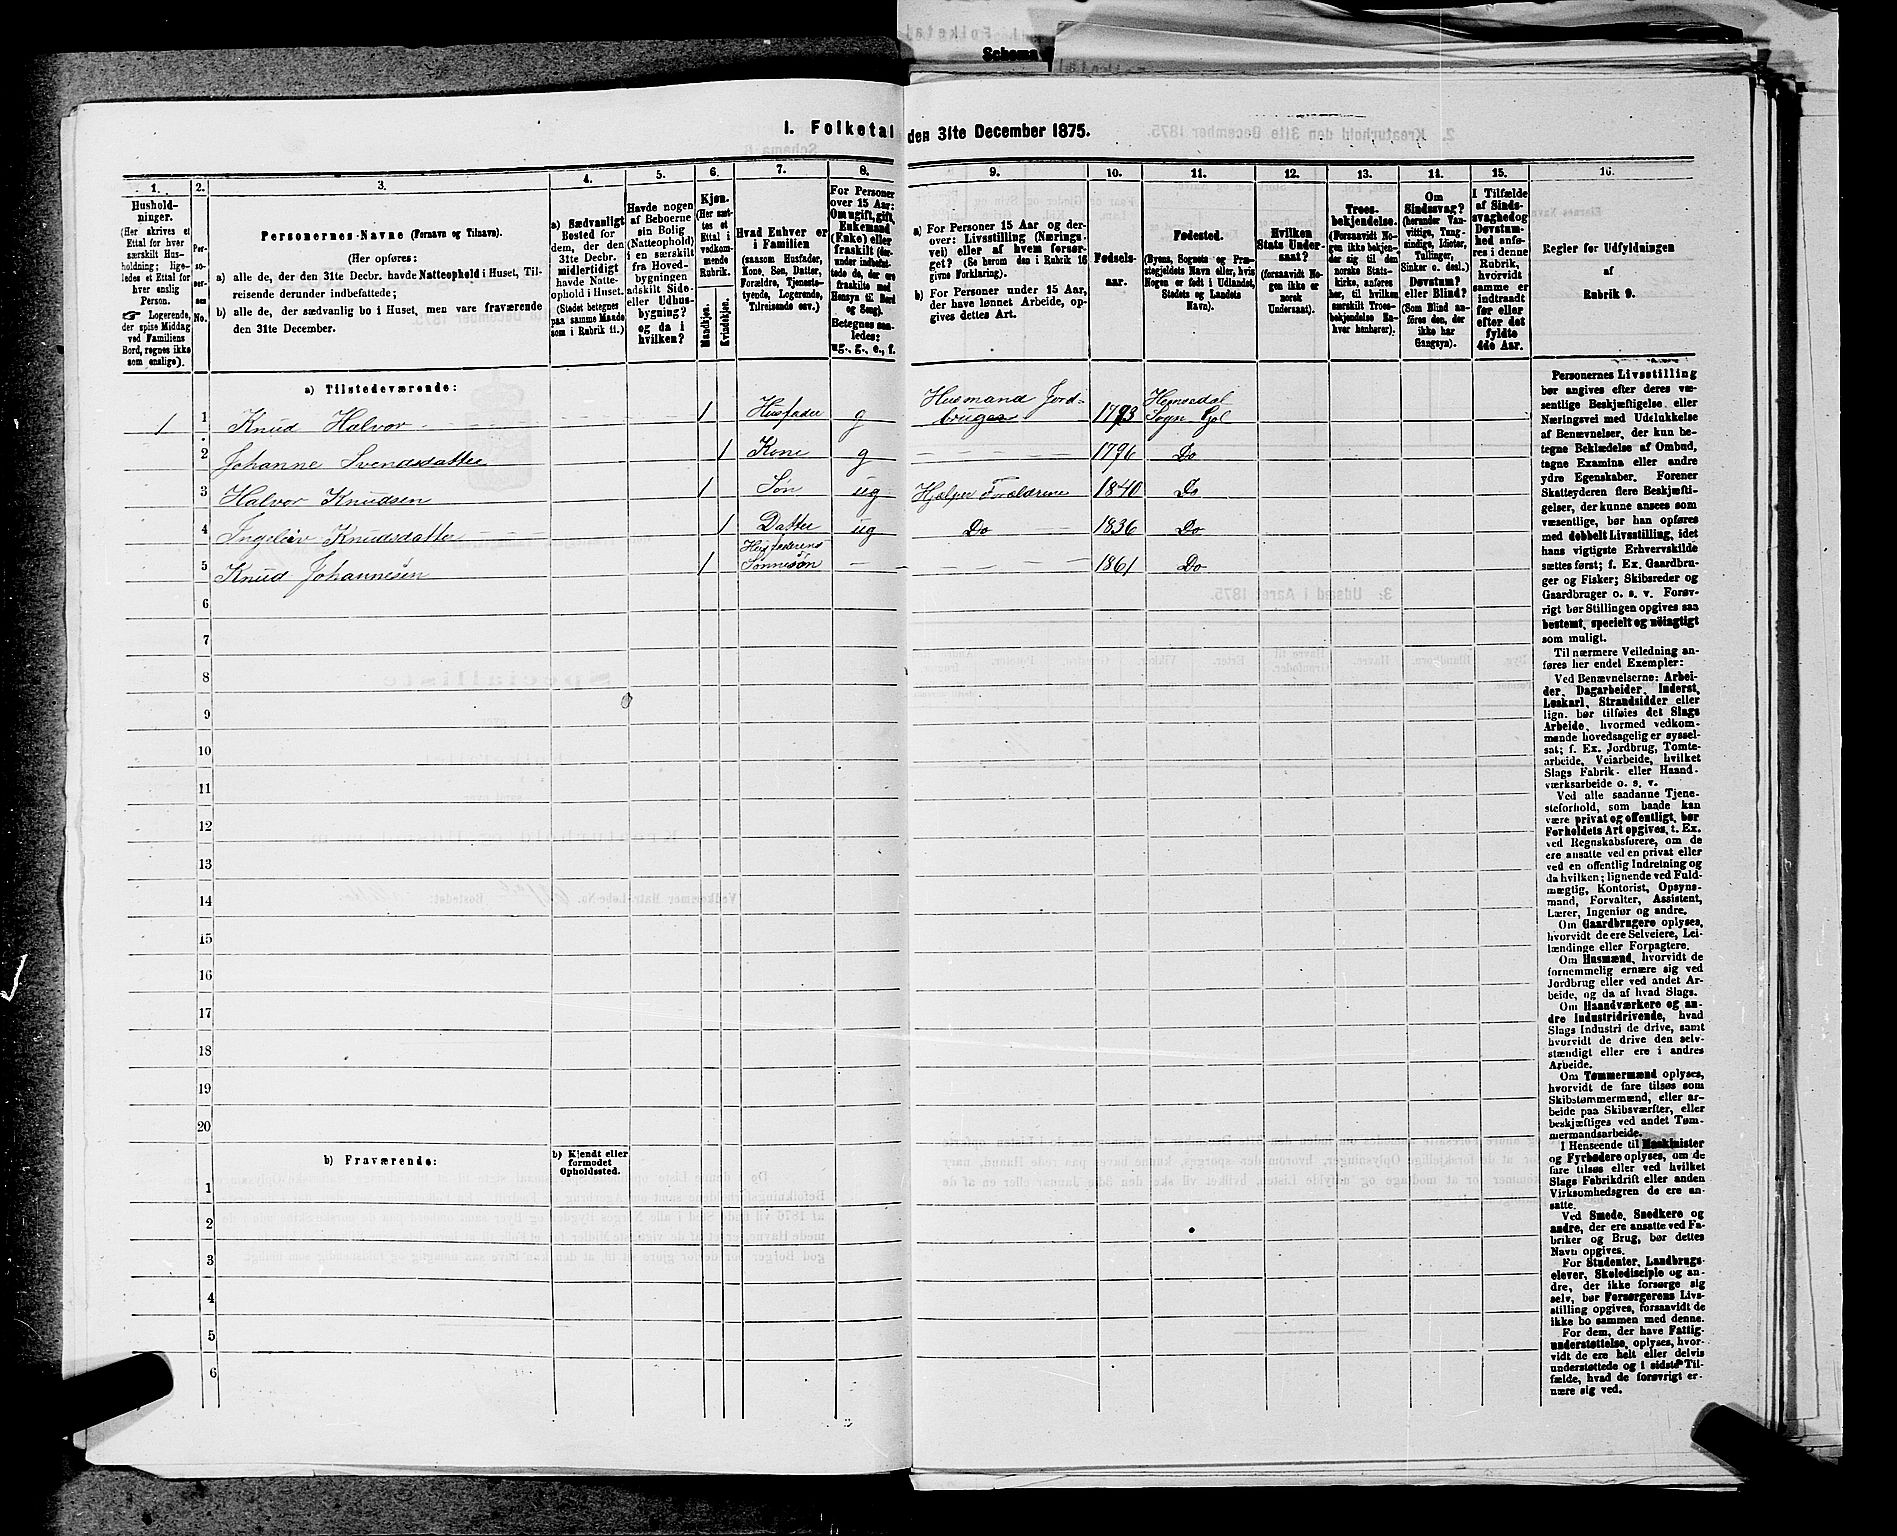 Schema
1. Folketal den 31te December 1875.
1. 2. 3. 4. 5. 6. 7. 8. 9. 10. 11. 12. 13. 14. 15. 16.
Hushold-
ninger.
(Her skrives et
Ettal for hver
særskilt Hus-
holdning; lige-
ledes et Ettal for
hver enslig
Person.
Logerende,
der spise Middag
ved Familiens
Bord, regnes ikke
som enslige).
Per-
so-
ner-
nes
No.
Personernes Navne (Fornavn og Tilnavn).
(Her opføres:
a) alle de, der den 31te Decbr. havde Natteophold i Huset, Til-
reisende derunder indbefattede;
b) alle de, der sædvanlig bo i Huset, men vare fraværende
den 31te December.
a) Sædvanligt
Bosted for
dem, der den
31te Decbr.
midlertidigt
havde Natte-
ophold i Huset.
(Stedet betegnes
paa samme Maade
som i Rubrik 11.)
Havde nogen
af Beboerne
sin Bolig
(Natteophold)
i en særskilt
fra Hoved-
bygningen
adskilt Side-
eller Udhus-
bygning?
og da i
hvilken?
Kjøn.
(Her sæt-
tes et
Ettal i
vedkom-
mende
Rubrik.
Mandkjøn.
Kvindekjøn.
Hvad Enhver er
i Familien
(saasom Husfader,
Kone, Søn, Datter,
Forældre, Tjeneste-
tyende, Logerende,
Tilreisende osv.)
For Personer
over 15 Aar:
Om ugift, gift,
Enkemand
(Enke) eller
fraskilt (der-
under indbefat-
tede de, der ere
fraskilte med
Hensyn til Bord
og Seng).
Betegnes saa-
ledes:
ug., g., e., f.
a) For Personer 15 Aar og der-
over: Livsstilling (Nærings-
vei) eller af hvem forsør-
get? (Se herom den i Rubrik 16
givne Forklaring).
b) For Personer under 15 Aar,
der have lønnet Arbeide, op-
gives dettes Art.
Fødsels-
aar.
Fødested.
(Byens, Sognets og Præ-
stegjeldets Navn eller, hvis
Nogen er født i Udlandet,
Stedets og Landets
Navn).
Hvilken
Stats Under-
saat?
(forsaavidt No-
gen ikke er
norsk
Undersaat).
Troes-
bekjendelse.
(Forsaavidt No-
gen ikke bekjen-
der sig til den
norske Stats-
kirke, anføres
her, til hvilken
særskilt Troes-
bekjendelse En-
hver henhører).
Om
Sindssvag?
(herunder Van-
vittige, Tung-
sindige, Idioter,
Tullinger,
Sinker o. desl.)
Døvstum?
eller Blind?
(Som Blind an-
føres den, der
ikke har
Gangsyn).
I Tilfælde
af Sinds-
svaghed og
Døvstum-
hed anfø-
res i denne
Rubrik,
hvorvidt
samme er
indtraadt
før eller
efter det
fyldte
4de Aar.
Regler for Udfyldningen
af
Rubrik 9.
a) Tilstedeværende:
1 1 Knud Halvor 1 Husfader g Husmand Jord-
bruger 1793 Hemsedal
Sogn Gol
2 Johanne Svendsdatter 1 Kone g 1796 Do
3 Halvor Knudsen 1 Søn ug Hjælper Forældrene 1840 Do
4 Ingeleiv Knudsdatter 1 Datter ug Do 1836 Do
5 Knud Johannesen 1 Husfaderens
Sønnesøn 1861 Do
6
7
8
9
10
11
12
13
14
15
16
17
18
19
20
b) Fraværende:
b) Kjendt eller
formodet
Opholdssted.
1
2
3
4
5
6
Personernes Livsstilling
bør angives efter deres væ-
sentlige Beskjæftigelse eller
Næringsvei med Udelukkelse
af Benævnelser, der kun be-
tegne Beklædelse af Ombud,
tagne Examina eller andre
ydre Egenskaber. Forener
Skatteyderen flere Beskjæfti-
gelser, der kunne ansees som
væsentlige, bør han opføres
med dobbelt Livsstilling, idet
hans vigtigste Erhvervskilde
sættes først; f. Ex. Gaardbru-
ger og Fisker; Skibsreder og
Gaardbruger o. s. v. Forøv-
rigt bør Stillingen opgives saa
bestemt, specielt og nøiagtigt
som muligt.
Til nærmere Veiledning an-
føres her endel Exempler:
Ved Benævnelserne: Arbei-
der, Dagarbeider, Inderst,
Løskarl, Strandsidder eller
lign. bør tilføies det Slags
Arbeide, hvormed vedkom-
mende hovedsagelig er syssel-
sat; f. Ex. Jordbrug, Tomte-
arbeide, Veiarbeide, hvilket
Slags Fabrik- eller Haand-
værksarbeide o. s. v.
Ved alle saadanne Tjene-
steforhold, som baade kan
være privat og offentligt, bør
Forholdets Art opgives, t. Ex.
ved Regnskabsførere, om de
ere ansatte ved en privat eller
ved en offentlig Indretning og
da hvilken; lignende ved Fuld-
mægtig, Kontorist, Opsyns-
mand, Forvalter, Assistent,
Lærer, Ingeniør og andre.
Om Gaardbrugere oplyses,
hvorvidt de ere Selveiere, Lei-
lændinge eller Forpagtere.
Om Husmænd, hvorvidt de
fornemmelig ernære sig ved
Jordbrug eller ved andet Ar-
beide, og da af hvad Slags.
Om Haandværkere og an-
dre Industridrivende, hvad
Slags Industri de drive, samt
hvorvidt de drive den selv-
stændigt eller ere i andres
Arbeide.
Om Tømmermænd oplyses,
hvorvidt de fare tilsøs som
Skibstømmermænd, eller ar-
beide paa Skibsværfter, eller
beskjæftiges ved andet Tøm-
mermandsarbeide.
I Henseende til Maskinister
og Fyrbødere oplyses, om de
fare tilsøs eller ved hvilket
Slags Fabrikdrift eller anden
Virksomhedsgren de ere an-
satte.
Ved Smede, Snedkere og
andre, der ere ansatte ved Fa-
briker og Brug, bør dettes
Navn opgives.
For Studenter, Landbrugs-
elever, Skoledisciple og an-
dre, der ikke forsørge sig
selv, bør Forsørgerens Livs-
stilling opgives, forsaavidt de
ikke bo sammen med denne.
For dem, der have Fattig-
understøttelse, oplyses, hvor-
vidt de ere helt eller delvis
understøttede og i sidste Til-
fælde, hvad de forøvrigt er-
nære sig ved.